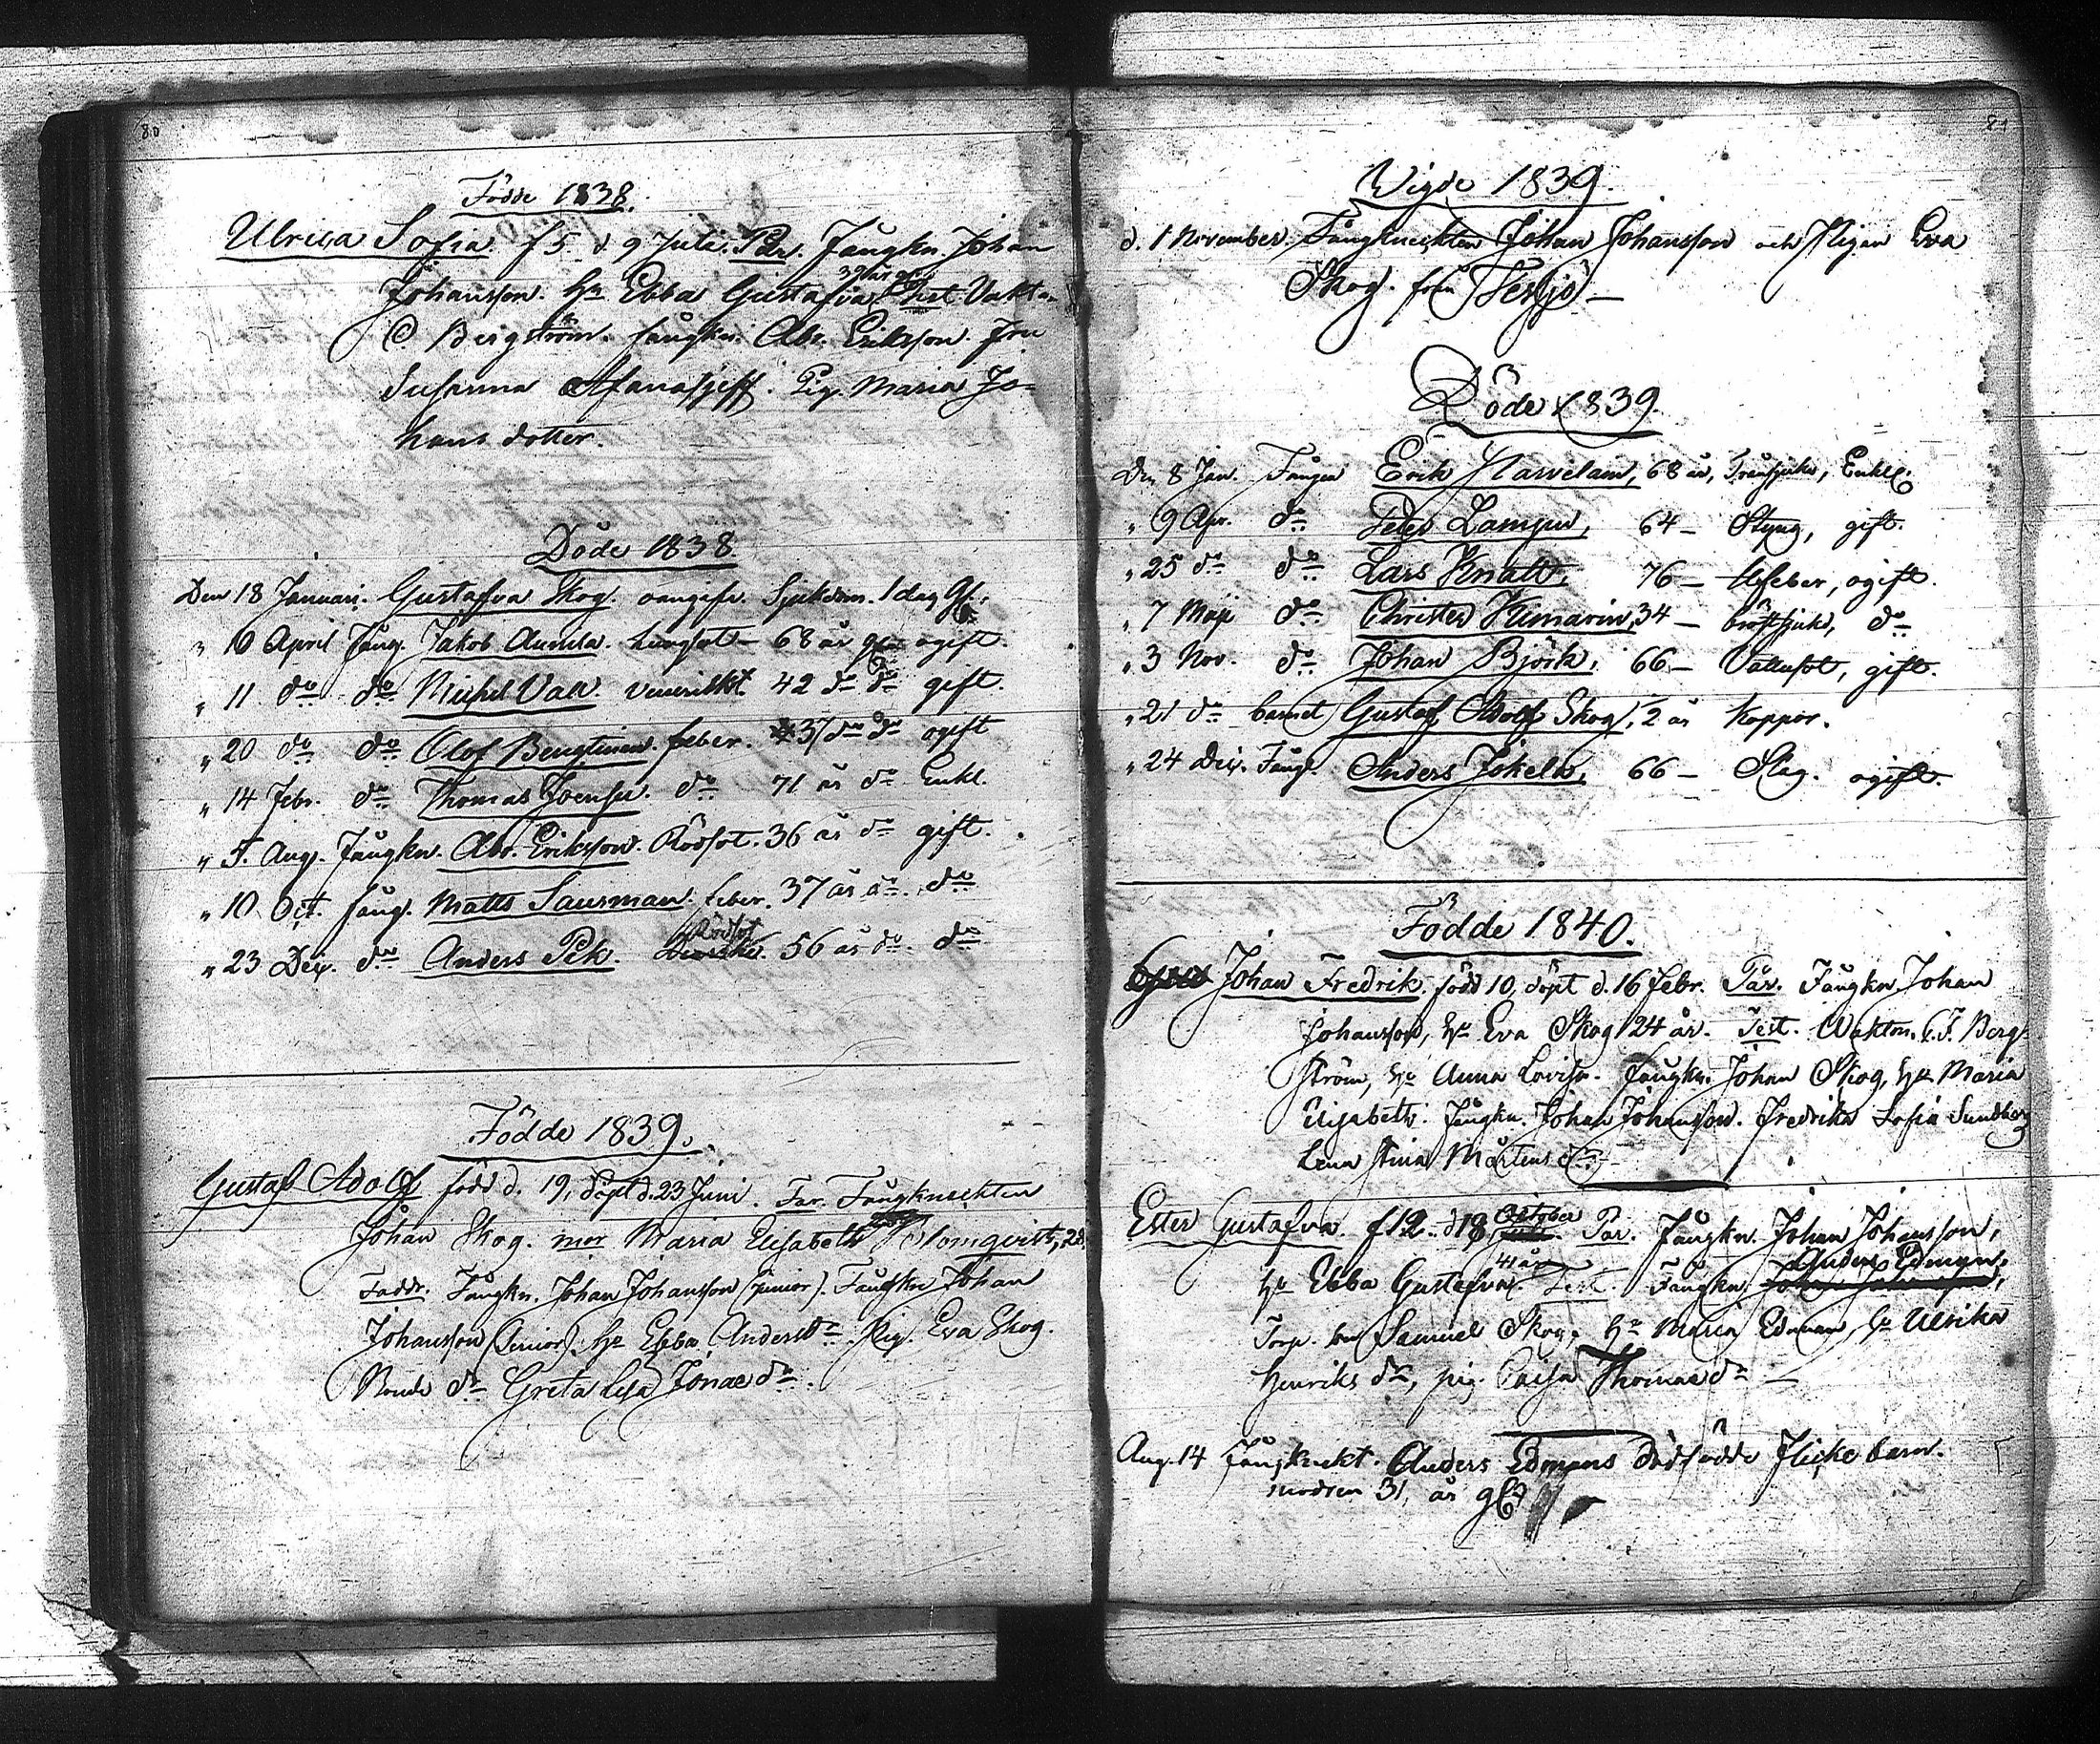 80
Födde 1838.
Ulrica Sofia. f 5. d 9 Juli. Par. Fångkn. Johan
Johansson. Hu Ebba Gustafva 39 år gl. Test. Vaktm.
C. Bergström. fångkn. Abr. Eriksson. Fru
Susanna Afanasjeff. Pig. Maria Jo=
hans dotter.
Döde 1838
Den 18 Januari. Gustafva Skog. oangifv. Sjukdom. 1 dag gl.
" 10 April Fång. Jakob lungsot 68 år ogift.
" 11 do do Michel Vall venerisk 42 do do gift.
" 20 do do Olof Bengtinen. feber. 37 do do ogift
" 14 Febr. do Thomas do 71 år do Enkl.
" 5. Aug. Fångkn. Abr. Eriksson. Rödsot. 36 år do gift.
" 10 Oct. fång. Matts Sausman. feber. 37 år do. do
" 23 Dec. do Anders Pek. Rödsot 56 år do. do
Födde 1839.
Gustaf Adolf född d. 19, döpt d. 23 Juni. Far. Fångknechten
Johan Skog. mor Maria Elisabeth Blomqvist, 28.
Faddr. Fångkn. Johan Johansson (junior). Fångkn Johan
Johansson (Senior). Hu Ebba Andersdr. Pig. Eva Skog.
Bonde dr Greta Lisa Jonae dr.
81
Wigde 1839.
d. 1 November. Fångknechten Johan Johansson och Pigan Eva
Skog. från Tesjö
Döde 1839.
Den 8 Jan. Fången Erik Harvelain, 68 år, Enkl.
" 9 Apr. do Peter Lampu, 64 – Styng, gift.
" 25 do do Lars Knall, 76 – feber, ogift.
" 7 Maji do Christer Kimarin, 34 – bröstsjuk, do
" 3 Nov. do Johan Björk, 66 – Vattusot, gift.
" 21 do barnet Gustaf Adolf Skog, 2 år Koppor.
" 24 Dec. Fång. Anders Jokela, 66 – Slag. ogift.
Födde 1840.
Johan Fredrik. född 10, döpt d. 16 febr. Par. Fångkn Johan
Johansson, Hu Eva Skog 24 år. Test. Waktm. C. F. Berg
ström, Hu Anna Lovisa. Fångkn. Johan Skog, Hu Maria
Elisabeth. Fångkn. Johan Johansson. Fredrika Sofia Sundberg
Lena Stina Mårtens dr
Ester Gustafva. f 12. d 18 October Par. Fångkn. Johan Johansson,
Hu Ebba Gustafva 41 år. Test. Fångkn. Anders Edman,
Torp. Samuel Skog, Hu Maria Edman, Hu Ulrika
Henriks dr, pig. Caisa Thomae dr
Aug. 14 Fångknekt. Anders Edmans dödfödde Flicke barn.
modren 31, år gl